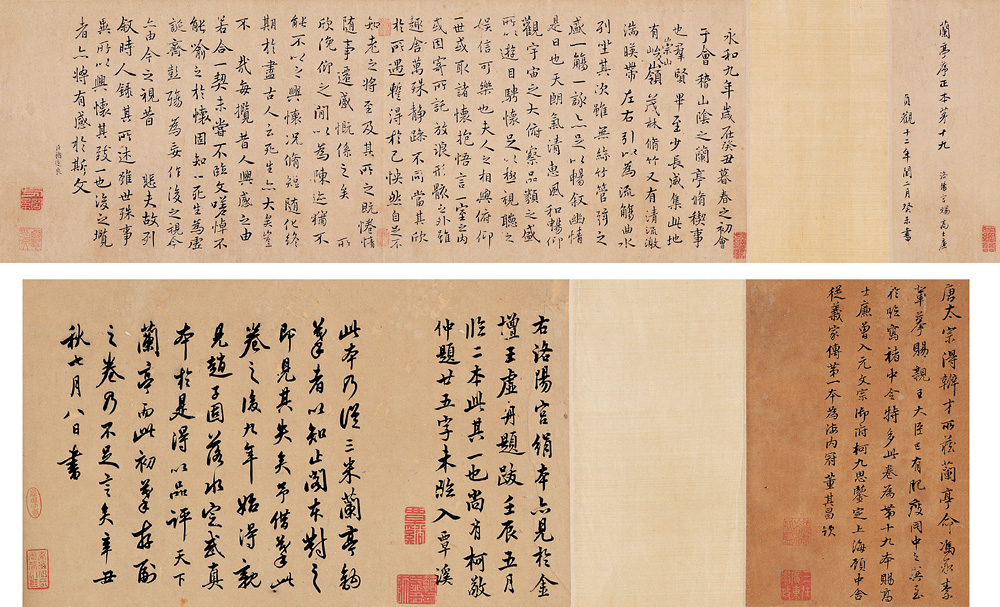 蘭亭序正本第十九
洛陽宮賜高士廉
貞觀十二年閏二月癸未書
永和九年歲在癸丑暮春之初會
于會稽山陰之蘭亭脩稧事
也羣賢畢至少長咸集此地
有崇山峻嶺茂林脩竹又有清流激
湍暎帶左右引以為流觴曲水
列坐其次雖無絲竹管弦之
盛一觴一詠亦足以暢叙幽情
是日也天朗氣清惠風和暢仰
觀宇宙之大俯察品類之盛
所以遊目騁懷足以極視聽之
娛信可樂也夫人之相與俯仰
一世或取諸懷抱悟言一室之內
或因寄所託放浪形骸之外雖
趣舍萬殊靜躁不同當其欣
於所遇暫得於己怏然自足不
知老之將至及其所之既惓情
隨事遷感慨係之矣 所
欣俛仰之間以為陳迹猶不
能不以之興懷況脩短隨化終
期於盡古人云死生亦大矣豈
不 哉每攬昔人興感之由
若合一契未嘗不臨文嗟悼不
能喻之於懷固知一死生為虛
誕齊彭殤為妄作後之視今
亦由今之視昔 悲夫故列
叙時人錄其所述雖世殊事
異所以興懷其致一也後之攬
者亦將有感於斯文
臣褚遂良
唐太宗得辯才所藏蘭亭命馮承素
輩摹賜親王大臣已有肥瘦同中之異至
於臨寫褚中令特多此卷為第十九本賜高
士廉曾入元文宗御府柯九思鑒定上海顧中舍
從義家傳第一本為海內冠董其昌欵
右洛陽宮絹本亦見於金
壇王虛舟題跋壬辰五月
臨二本此其一也尚有柯敬
仲題廿五字未臨入 覃溪
此本乃從三米蘭亭鈎
摹者以知止閣本對之
即見其失矣予借摹此
卷之後九年始得親
見趙子固落水定武真
本於是得以品評天下
蘭亭而此初摹存副
之卷乃不足言矣辛丑
秋七月八日書